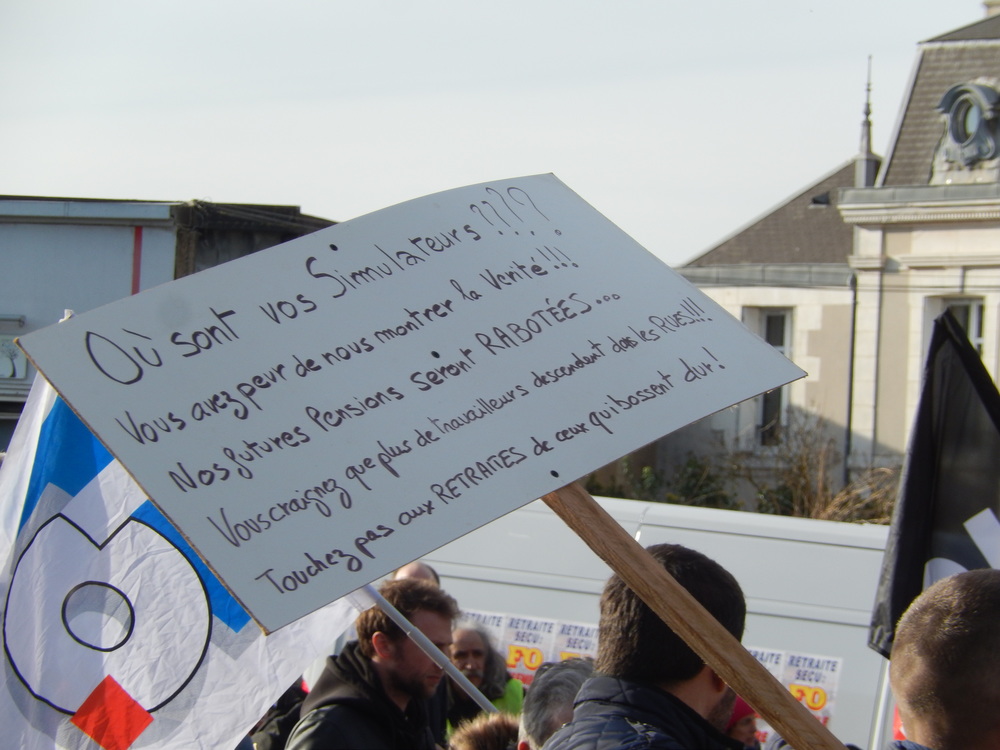 Où sont vos Simulateurs ????
Vous avez peur de nous montrer la Vérité !!!
Nos futures Pensions seront RABOTÉES...
Vous craignez que plus de travailleurs descendent dans les RUES!!!
Touchez pas aux RETRAITES de ceux qui bossent dur !
RETRAITE
SECU:
FO
RETRAITE
SECU:
FO